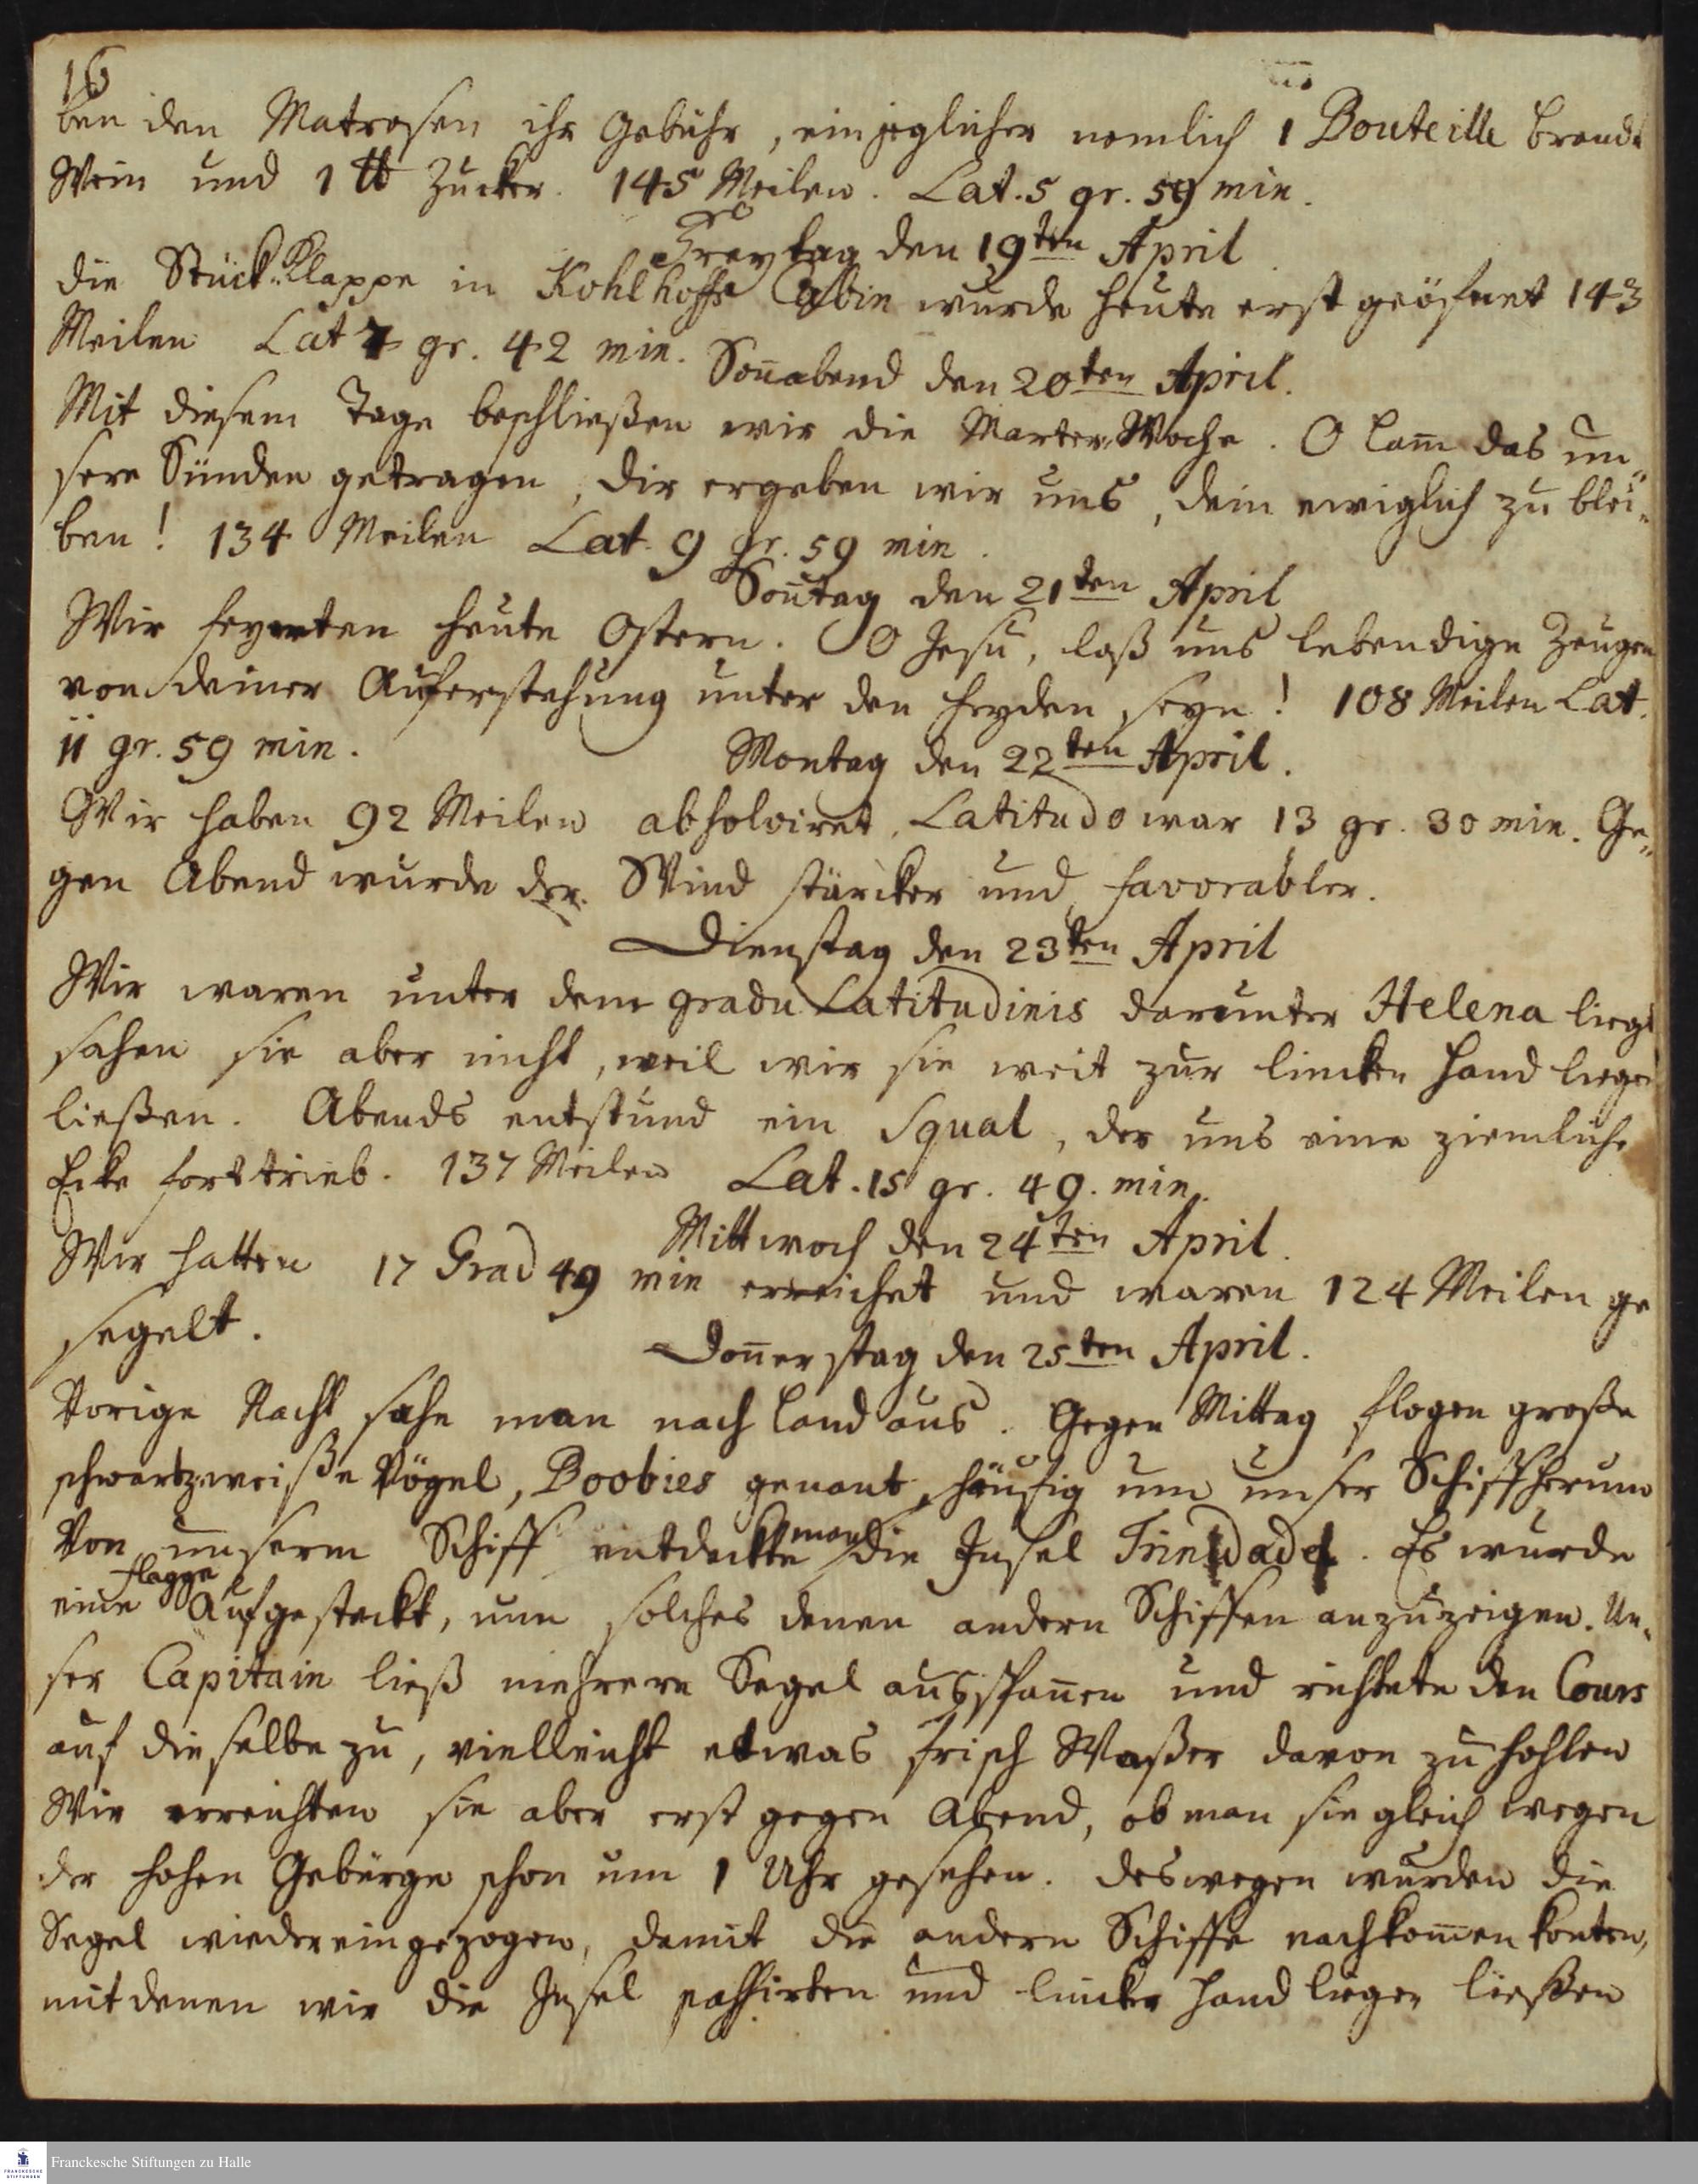 16
ben den Matrosen ihr Gebühr, ein jeglicher nemlich 1 Bouteille Brandt
Wein und 1 ℔ Zucker. 145 Meilen. Lat. 5 gr. 59 min.
Freytag den 19ten April
die Stück-Klappe in Kohlhoffs Cabin wurde heute erst geöfnet 143
Meilen Lat 7 gr. 42 min.
Soñabend den 20ten April.
Mit diesem Tage beschließen wir die Marter-Woche. O Lam̃ das un-
sere Sünden getragen, dir ergeben wir uns, dein ewiglich zu blei-
ben! 134 Meilen Lat. 9 gr. 59 min.
Soñtag den 21ten April
Wir feyerten heute Ostern. O Jesu, laß uns lebendige Zeugen
von deiner Auferstehung unter den Heyden seyn! 108 Meilen Lat.
11 gr. 59 min.
Montag den 22ten April.
Wir haben 92 Meilen absolviret, Latitudo war 13 gr. 30 min. Ge-
gen Abend wurde der Wind stärcker und favorabler.
Dienstag den 23ten April
Wir waren unter dem gradu Latitudinis darunter Helena liegt
sahen sie aber nicht, weil wir sie weit zur lincken Hand liegen
ließen. Abends entstund ein Squal, der uns eine ziemliche
Ecke forttrieb. 137 Meilen Lat. 15 gr. 49. min.
Mittwoch den 24ten April.
Wir hatten 17 Grad 49 min erreichet und waren 124 Meilen ge
segelt.
Doñerstag den 25ten April.
Vorige Nacht sahe man nach Land aus. Gegen Mittag flogen große
schwartzweiße Vögel, Boobies genant, häufig um unser Schiff herum
Von unserm Schiff entdeckte man die Insel Trinidade. Es wurde
eine Flagge aufgesteckt, um solches denen andern Schiffen anzuzeigen. Un-
ser Capitain ließ mehrere Segel ausspañen und richtete den Cours
auf dieselbe zu, vielleicht etwas frisch Waßer davon zu hohlen
Wir erreichten sie aber erst gegen Abend, ob man sie gleich wegen
der hohen Gebürge schon um 1 Uhr gesehen. Deswegen wurden die
Segel wieder eingezogen, damit die andern Schiffe nachkom̃en konten,
mit denen wir die Insel passirten und lincker Hand liegen ließen
Franckesche Stiftungen zu Halle